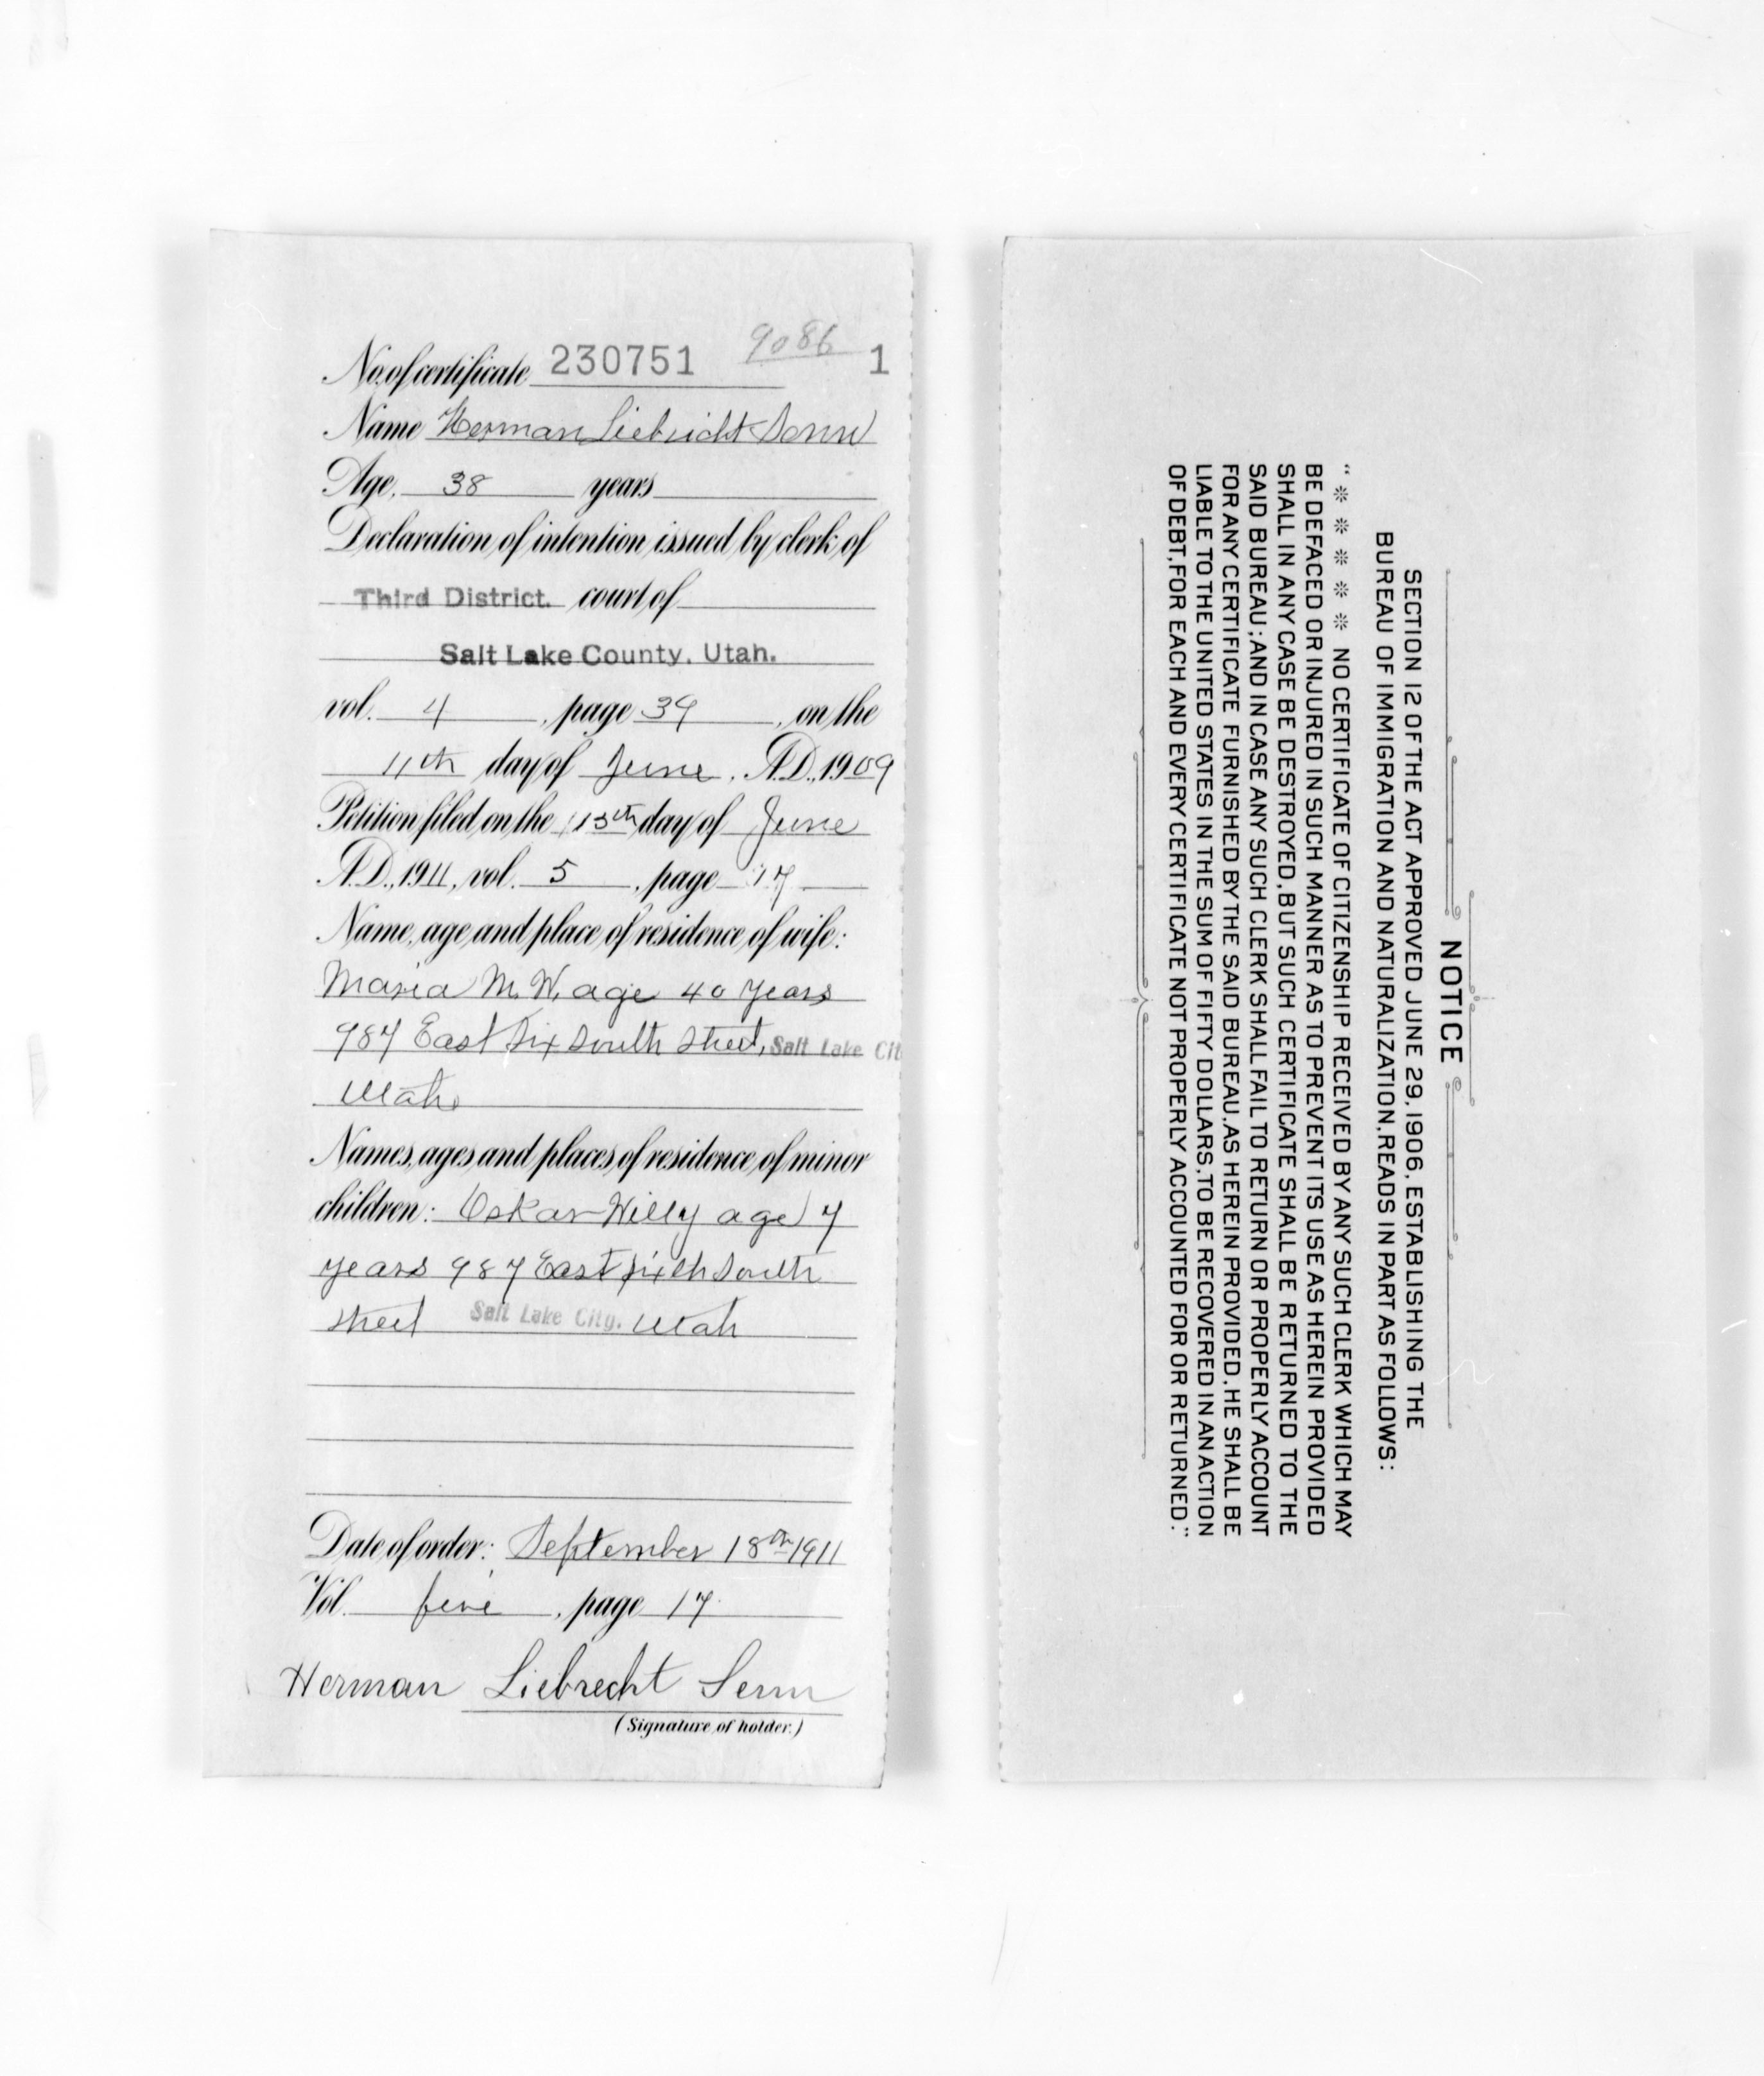 9086
No. of certificate 230751 1
Name Herman Liebricht Senn
Age, 38 years
Declaration of intention issued by clerk of
Third District. court of
Salt Lake County, Utah.
vol. 4, page 39, on the
11th day of June, A.D., 1909
Petition filed on the 13th day of June
A.D., 1911, vol. 5, page 17
Name, age and place of residence of wife:
Maria M. W. age 40 years
987 East Six South Street, Salt Lake Cit
Utah
Names, ages and places of residence of minor
children: Oskar Willy age 7
years 987 East Sixth South
Street Salt Lake City. Utah
Date of order: September 18th 1911
Vol. five, page 17
Herman Liebrecht Senn
(Signature of holder.)
NOTICE
SECTION 12 OF THE ACT APPROVED JUNE 29, 1906, ESTABLISHING THE
BUREAU OF IMMIGRATION AND NATURALIZATION, READS IN PART AS FOLLOWS:
"* * * * * NO CERTIFICATE OF CITIZENSHIP RECEIVED BY ANY SUCH CLERK WHICH MAY
BE DEFACED OR INJURED IN SUCH MANNER AS TO PREVENT ITS USE AS HEREIN PROVIDED
SHALL IN ANY CASE BE DESTROYED, BUT SUCH CERTIFICATE SHALL BE RETURNED TO THE
SAID BUREAU; AND IN CASE ANY SUCH CLERK SHALL FAIL TO RETURN OR PROPERLY ACCOUNT
FOR ANY CERTIFICATE FURNISHED BY THE SAID BUREAU, AS HEREIN PROVIDED, HE SHALL BE
LIABLE TO THE UNITED STATES IN THE SUM OF FIFTY DOLLARS, TO BE RECOVERED IN AN ACTION
OF DEBT, FOR EACH AND EVERY CERTIFICATE NOT PROPERLY ACCOUNTED FOR OR RETURNED."